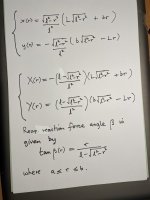 x(r) = √(l²-r²)/l² (L√(l²-r²) + br)
y(r) = -√(l²-r²)/l² (b√(l²-r²) - Lr)
X(r) = -(l-√(l²-r²)/l²)(L√(l²-r²) + br)
Y(r) = (l-√(l²-r²)/l²)(b√(l²-r²) - Lr)
Rear reaction force angle β is
given by
tan β(r) = r/(l-√(l²-r²))
where a ≤ r ≤ b.